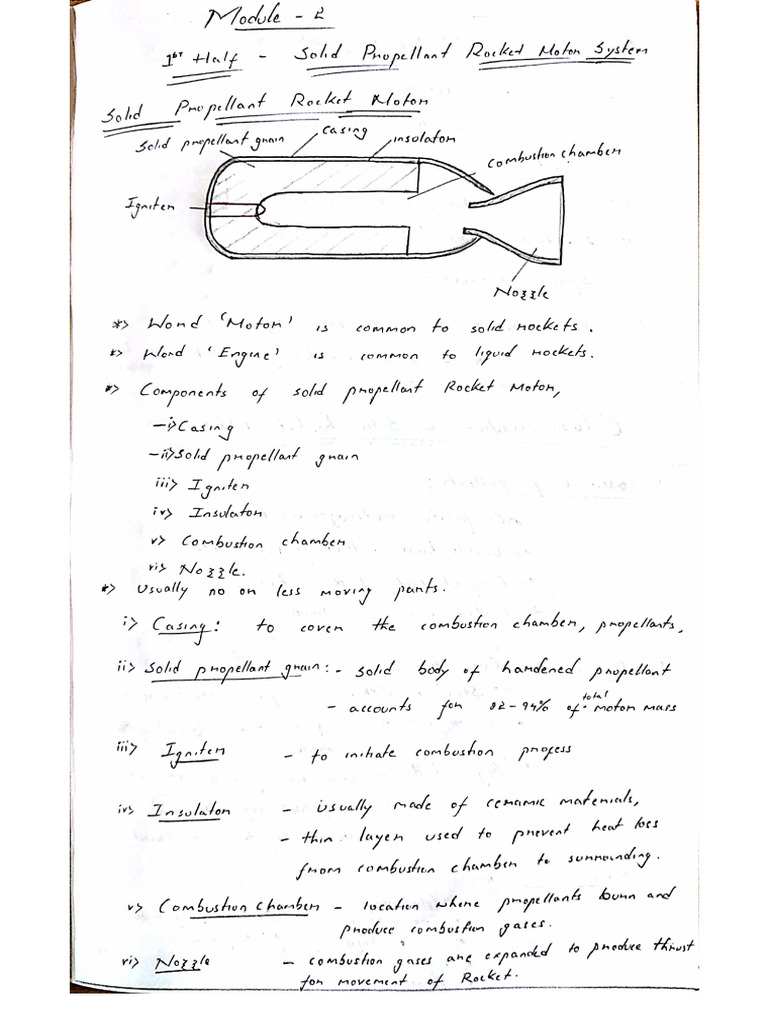 Module - 2
1st Half - Solid Propellant Rocket Motor System
Solid Propellant Rocket Motor
Solid propellant grain
Casing
insulator
Combustion chamber
Igniter
Nozzle
*> Word 'Motor' is common to solid rockets.
*> Word 'Engine' is common to liquid rockets.
*> Components of solid propellant Rocket Motor,
-i> Casing
-ii> Solid propellant grain
iii> Igniter
iv> Insulator
v> Combustion chamber
vi> Nozzle.
*> Usually no or less moving parts.
i> Casing: to cover the combustion chamber, propellants,
ii> Solid propellant grain: - solid body of hardened propellant
- accounts for 82-94% of total motor mass
iii> Igniter - to initiate combustion profess
iv> Insulator - usually made of ceramic materials,
- thin layer used to prevent heat loss
from combustion chamber to surrounding.
v> Combustion chamber - location where propellants burn and
produce combustion gases.
vi> Nozzle - combustion gases are expanded to produce thrust
for movement of Rocket.